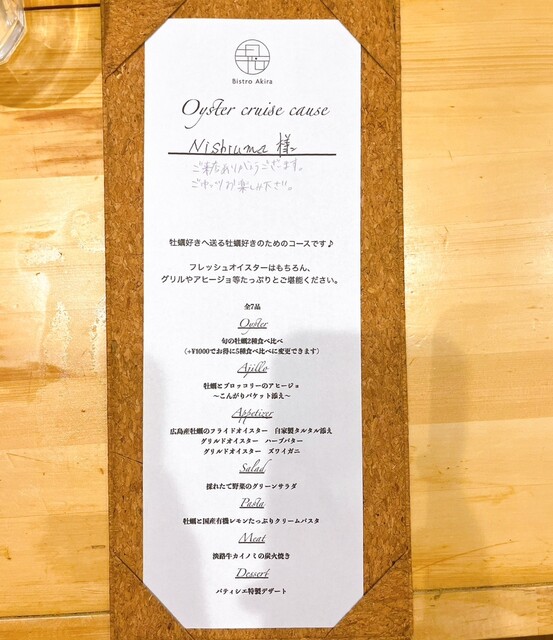 Bistro Akira
Oyster cruise cause
Nishiuma 様
ご来店ありがとうございます。
ごゆっくりお楽しみ下さい。
牡蠣好きへ送る牡蠣好きのためのコースです♪
フレッシュオイスターはもちろん、
グリルやアヒージョ等たっぷりとご堪能ください。
全7品
Oyster
旬の牡蠣2種食べ比べ
(+¥1000でお得に5種食べ比べに変更できます)
Ajillo
牡蠣とブロッコリーのアヒージョ
〜こんがりバケット添え〜
Appetizer
広島産牡蠣のフライドオイスター 自家製タルタル添え
グリルドオイスター ハーブバター
グリルドオイスター ズワイガニ
Salad
採れたて野菜のグリーンサラダ
Pasta
牡蠣と国産有機レモンたっぷりクリームパスタ
Meat
淡路牛カイノミの炭火焼き
Dessert
パティシエ特製デザート